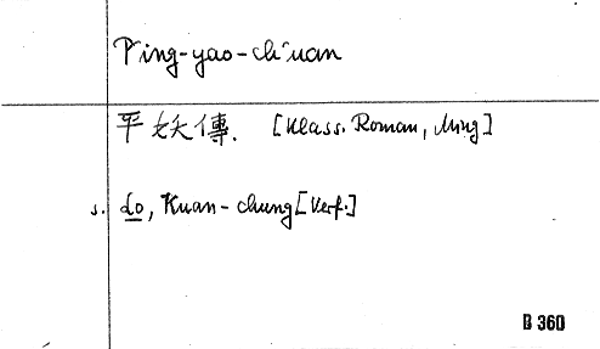 P'ing-yao-ch'uan
平妖傳. [Klass. Roman, Ming]
s. Lo, Kuan-chung [Verf.]
B 360